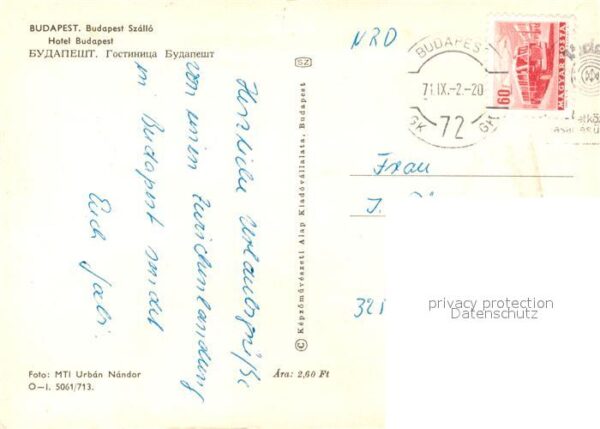 BUDAPEST. Budapest Szálló
Hotel Budapest
БУДАПЕШТ. Гостиница Будапешт
Herzliche Urlaubsgrüße
von einer Zwischenlandung
in Budapest sendet
Euch Gabi.
Foto: MTI Urbán Nándor
O—I. 5061/713.
Ára: 2,60 Ft
SZ
© Képzőművészeti Alap Kiadóvállalata, Budapest
NRD
BUDAPES
71.IX.-2.-20
GK 72 GK
60
MAGYAR POSTA
Frau
321
privacy protection
Datenschutz